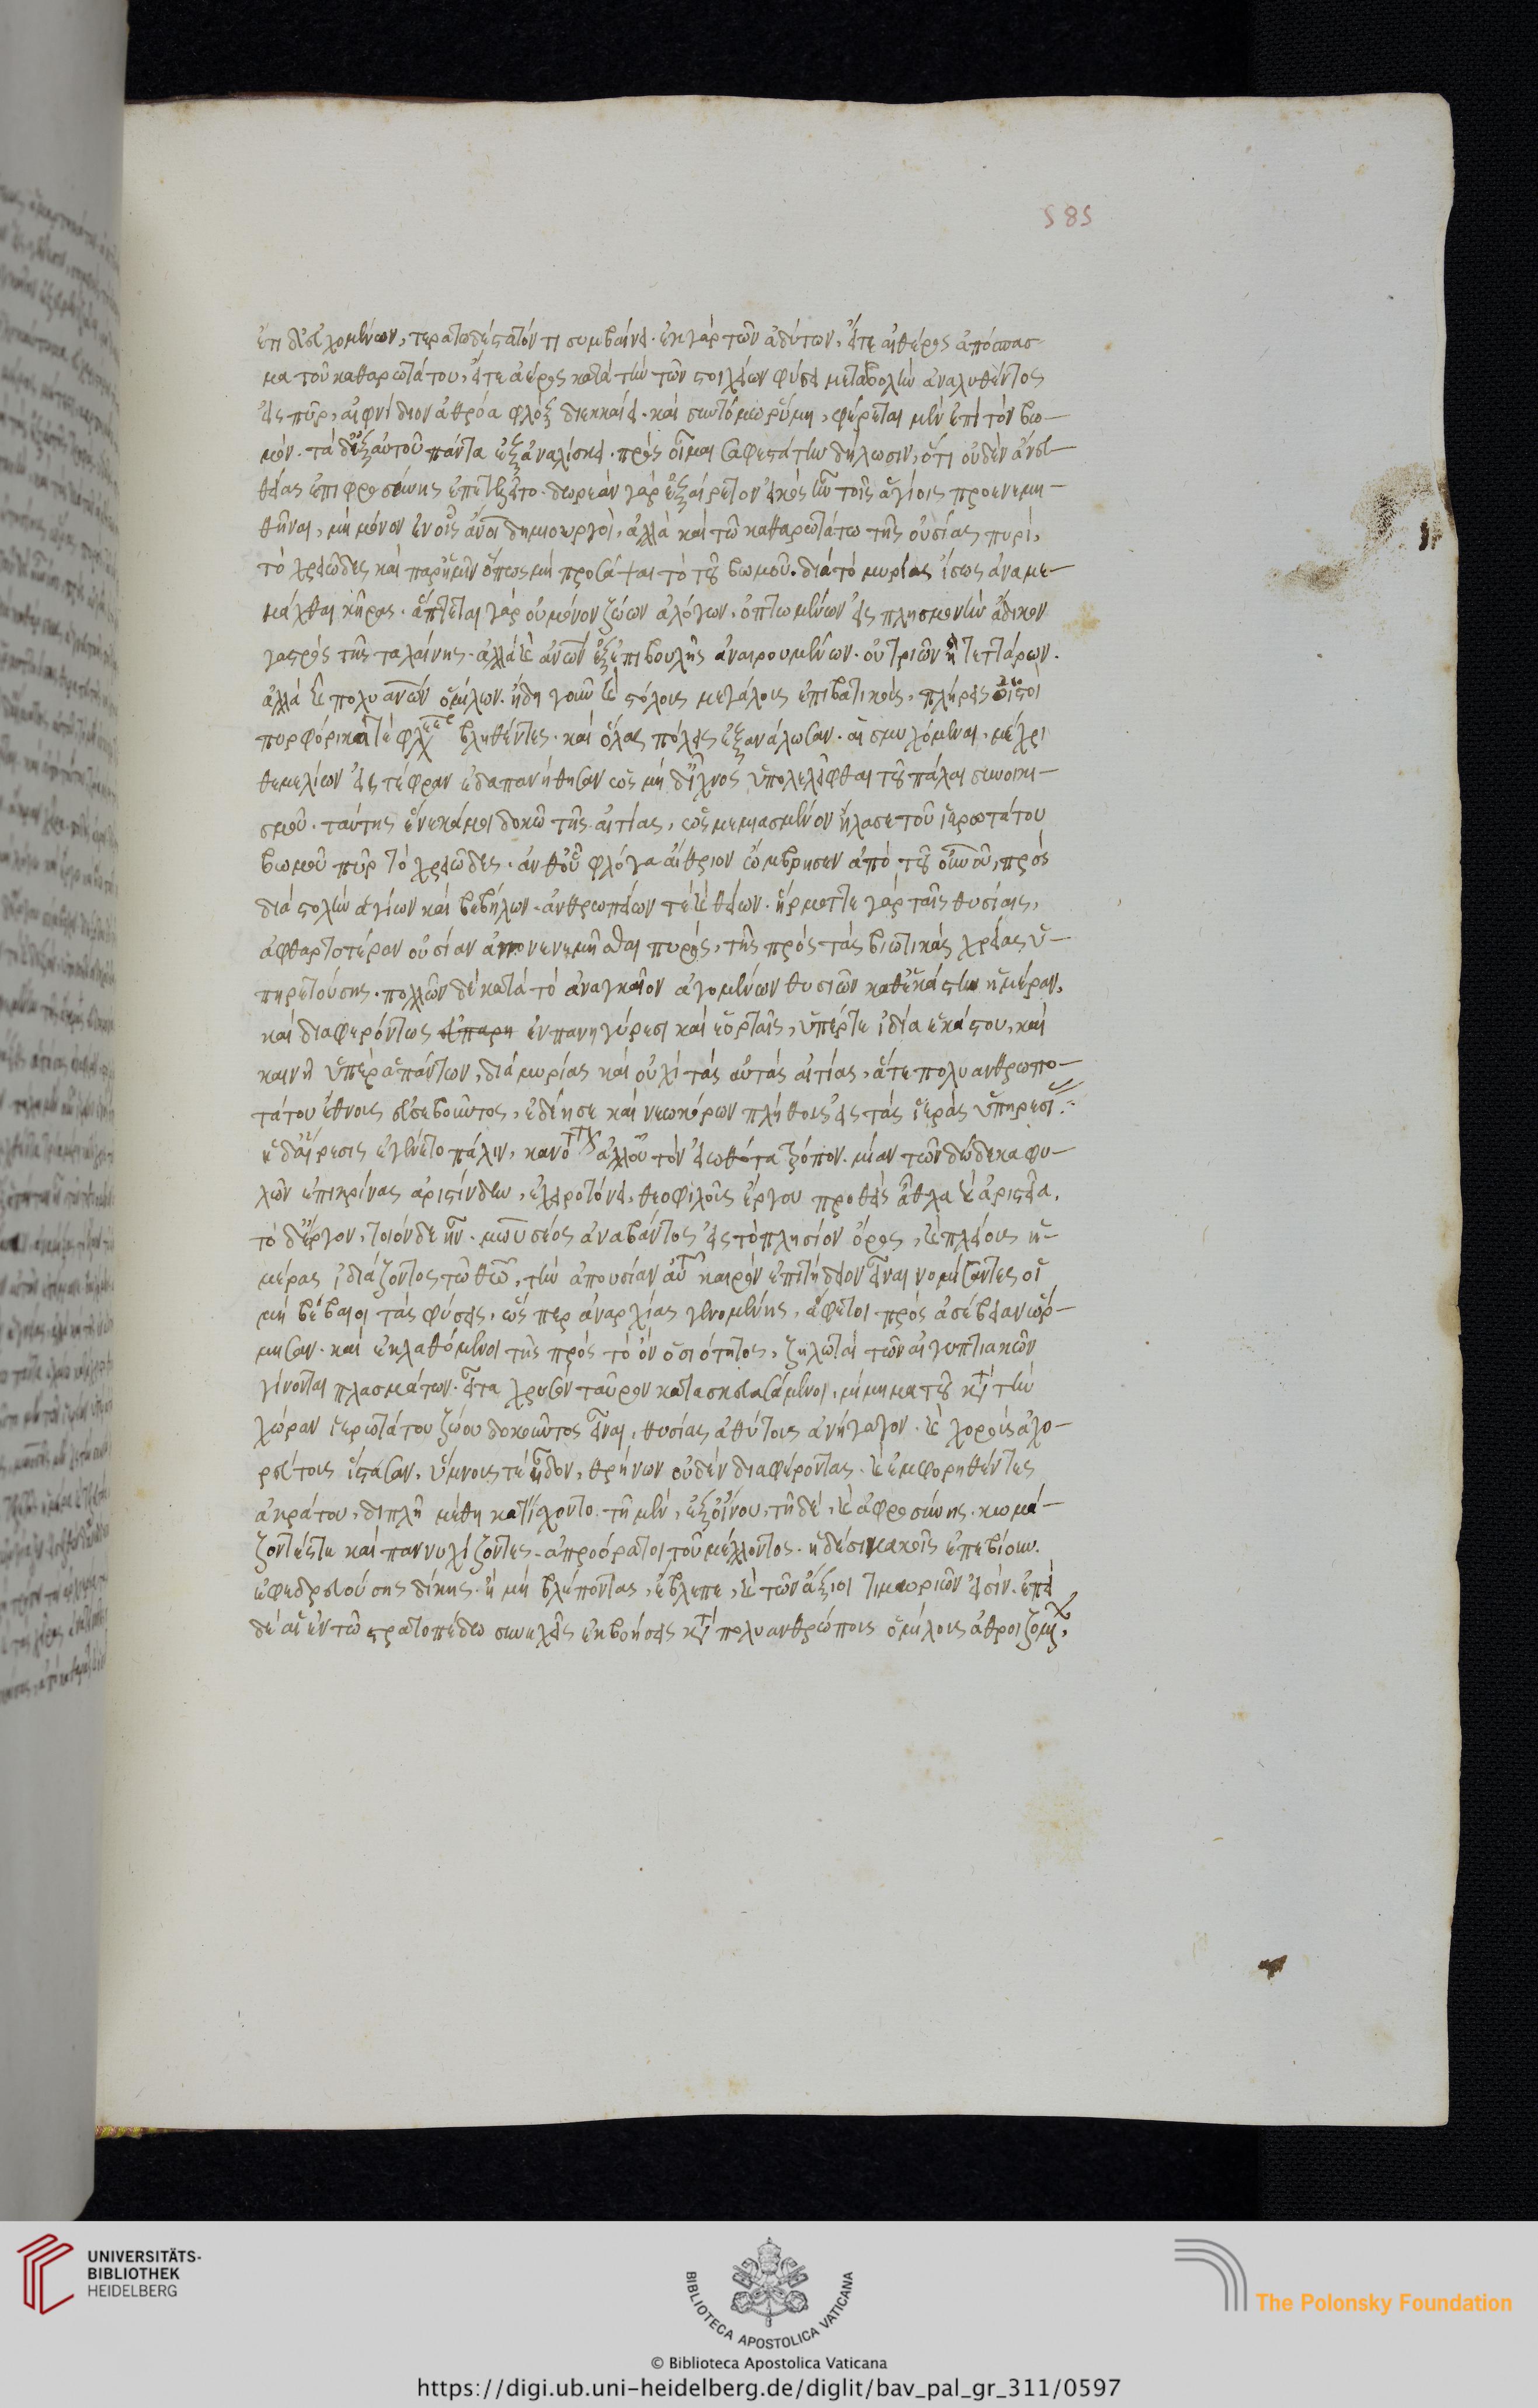 585
ἔτι δ' εὐχομένων, τερατωδέστατόν τι συμβαίνει. ἐκ γὰρ τῶν ἀδύτων, εἴτε αἰθέρος ἀπόσπασ-
μα τοῦ καθαρωτάτου, εἴτε ἀέρος κατὰ τὴν τῶν στοιχείων φύσει μεταβολὴν ἀναλυθέντος
εἰς πῦρ, αἰφνίδιον ἀθρόα φλὸξ διεκκαίει. καὶ συντόμω ρύμη, φέρεται μὲν ἐπὶ τὸν βω-
μόν. τὰ δ' ἐξ αὐτοῦ πάντα ἐξαναλίσκει. πρὸς οἶμαι σαφεστάτην δήλωσιν, ὅτι οὐδὲν ἄνευ
θείας ἐπιφροσύνης ἐπετελεῖτο. δωρεὰν γὰρ ἐξαίρετον εἰκὸς ἦν τοῖς ἁγίοις προσνεμη-
θῆναι, μὴ μόνον ἐν οἷς ἄνοι δημιουργοὶ, ἀλλὰ καὶ τῶ καθαρωτάτω τῆς οὐσίας πυρί,
τὸ χρειῶδες καὶ παρ' ἡμῖν ὅπως μὴ προσάψαι τὸ τοῦ βωμοῦ. διὰ τὸ μυρίας ἴσως ἀναμε-
μάχθαι κῆρας. ἅπτεται γὰρ οὐ μόνον ζώων ἀλόγων. ὀπτωμένων εἰς πλησμονὴν ἄδικον
γαστρὸς τῆς ταλαίνης. ἀλλὰ καὶ ἀνων ἐξ ἐπιβουλῆς ἀναιρουμένων. οὐ τριῶν ἢ τεττάρων.
ἀλλὰ καὶ πολυανων ὁμίλων. ἤδη γοῦν καὶ στόλους μεγάλους ἐπιβατικοῖς, πλήρεις οἰστοὶ
πυρφόροι βληθέντες. καὶ ὅλας πόλεις ἐξανάλωσαν. αἳ σμυχόμεναι, μέχρι
θεμελίων εἰς τέφραν ἐδαπανήθησαν ὡς μὴ δ' ἴχνος ὑπολελεῖφθαι τοῦ πάλαι συνοικι-
σμοῦ. ταύτης ἕνεκά μοι δοκῶ τῆς αἰτίας, ὡς μεμιασμένον ἤλασε τοῦ ἱερωτάτου
βωμοῦ πῦρ τὸ χρειῶδες. ἀνθ' οὗ φλόγα αἴθριον ὤμβρησεν ἀπὸ τοῦ οὐνοῦ, πρὸς
διαστολὴν ἁγίων καὶ βεβήλων. ἀνθρωπείων τὲ καὶ θείων. ἥρμοττε γὰρ ταῖς θυσίαις,
ἀφθαρτοτέραν οὐσίαν ἀπονενεμῆσθαι πυρὸς, τῆς πρὸς τὰς βιωτικὰς χρείας ὑ-
πηρετούσης. πολλῶν δὲ κατὰ τὸ ἀναγκαῖον ἀγομένων θυσιῶν καθ' ἑκάστην ἡμέραν,
καὶ διαφερόντως ἐν πανηγύρεσι καὶ ἑορταῖς, ὑπέρ τε ἰδία ἑκάστου, καὶ
κοινῆ ὑπὲρ ἁπάντων, διὰ μυρίας καὶ οὐχὶ τὰς αὐτὰς αἰτίας, ἅτε πολυανθρωπο-
τάτου ἔθνους εὐσεβοῦντος, ἐδέησε καὶ νεωκόρων πλήθους εἰς τὰς ἱερὰς ὑπηρεσί
ἡ δ' αἵρεσις ἐγένετο πάλιν, καινὸ ἀλλ' οὐ τὸν εἰωθότα τρόπον. μίαν τῶν δώδεκα φυ-
λῶν ἐπικρίνας ἀριστίνδην, ἐχειροτόνει, θεοφιλοῦς ἔργου προθεὶς ἆθλα καὶ ἀριστεῖα.
τὸ δ' ἔργον, τοιόνδε ἦν. μωυσέος ἀναβάντος εἰς τὸ πλησίον ὄρος, καὶ πλείους ἡ-
μέρας ἰδιάζοντος τῶ θεῶ, τὴν ἀπουσίαν αὐτ καιρὸν ἐπιτήδειον εἶναι νομίσαντες οἱ
μὴ βέβαιοι τὰς φύσεις, ὥς περ ἀναρχίας γενομένης, ἄφετοι πρὸς ἀσέβειαν ὥρ-
μησαν. καὶ ἐκλαθόμενοι τῆς πρὸς τὸ ὂν ὁσιότητος, ζηλωταὶ τῶν αἰγυπτιακῶν
γίνονται πλασμάτων. εἶτα χρυσὸν ταῦρον κατασκευασάμενοι, μίμημα τοῦ κτ τὴν
χώραν ἱερωτάτου ζώου δοκοῦντος εἶναι, θυσίας ἀθύτους ἀνήγαγον. καὶ χοροὺς ἀχο-
ρεύτους ἵστασαν, ὕμνους τὲ ἦδον, θρήνων οὐδὲν διαφέροντας. καὶ ἐμφορηθέντες
ἀκράτου, διπλῆ μέθη κατίσχοντο. τῆ μὲν, ἐξ οἴνου, τῆ δὲ, καὶ ἀφροσύνης. κωμά-
ζοντές τε καὶ παννυχίζοντες. ἀπροόρατοι τοῦ μέλλοντος. ἡδέσι κακοῖς ἐπεβίουν.
ἐφεδρευούσης δίκης. ἣ μὴ βλέποντας, ἔβλεπε, καὶ τῶν ἄξιοι τιμωριῶν εἰσίν. ἐπεὶ
δὲ αἱ ἐν τῶ στρατοπέδω συνεχεῖς ἐκβοήσεις κτ πολυανθρώπους ὁμίλους ἀθροιζομ,
UNIVERSITÄTS-
BIBLIOTHEK
HEIDELBERG
BIBLIOTECA APOSTOLICA VATICANA
The Polonsky Foundation
© Biblioteca Apostolica Vaticana
https://digi.ub.uni-heidelberg.de/diglit/bav_pal_gr_311/0597